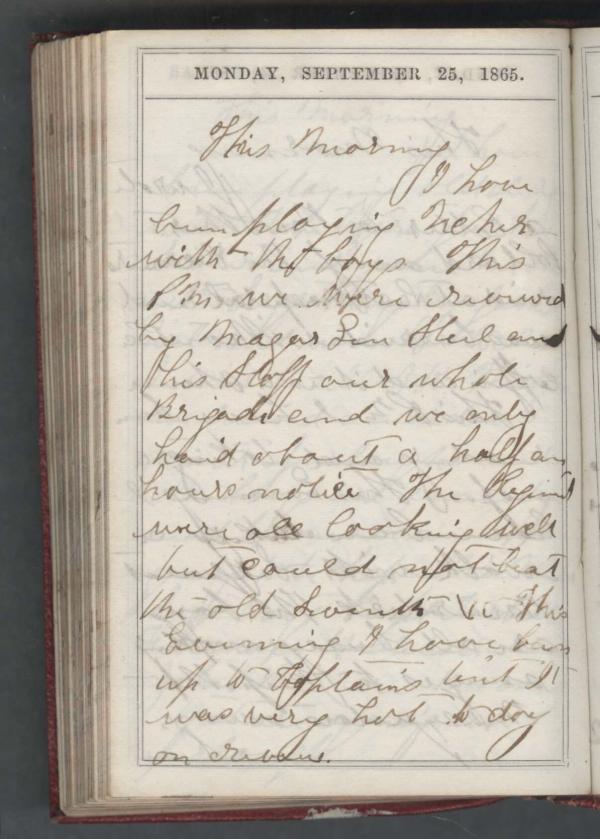 MONDAY, SEPTEMBER 25, 1865.
This Morning
I have
been playing Ucher
with the boys This
P.M. we were reviewed
by Magar Gen Steel and
his Staff our whole
Brigade and we only
haid about a half an
hours notice The Regint
were all looking well
but could not beat
the old Seventh This
Evening I have ben
up to Captains tent It
was very hot to day
on review.